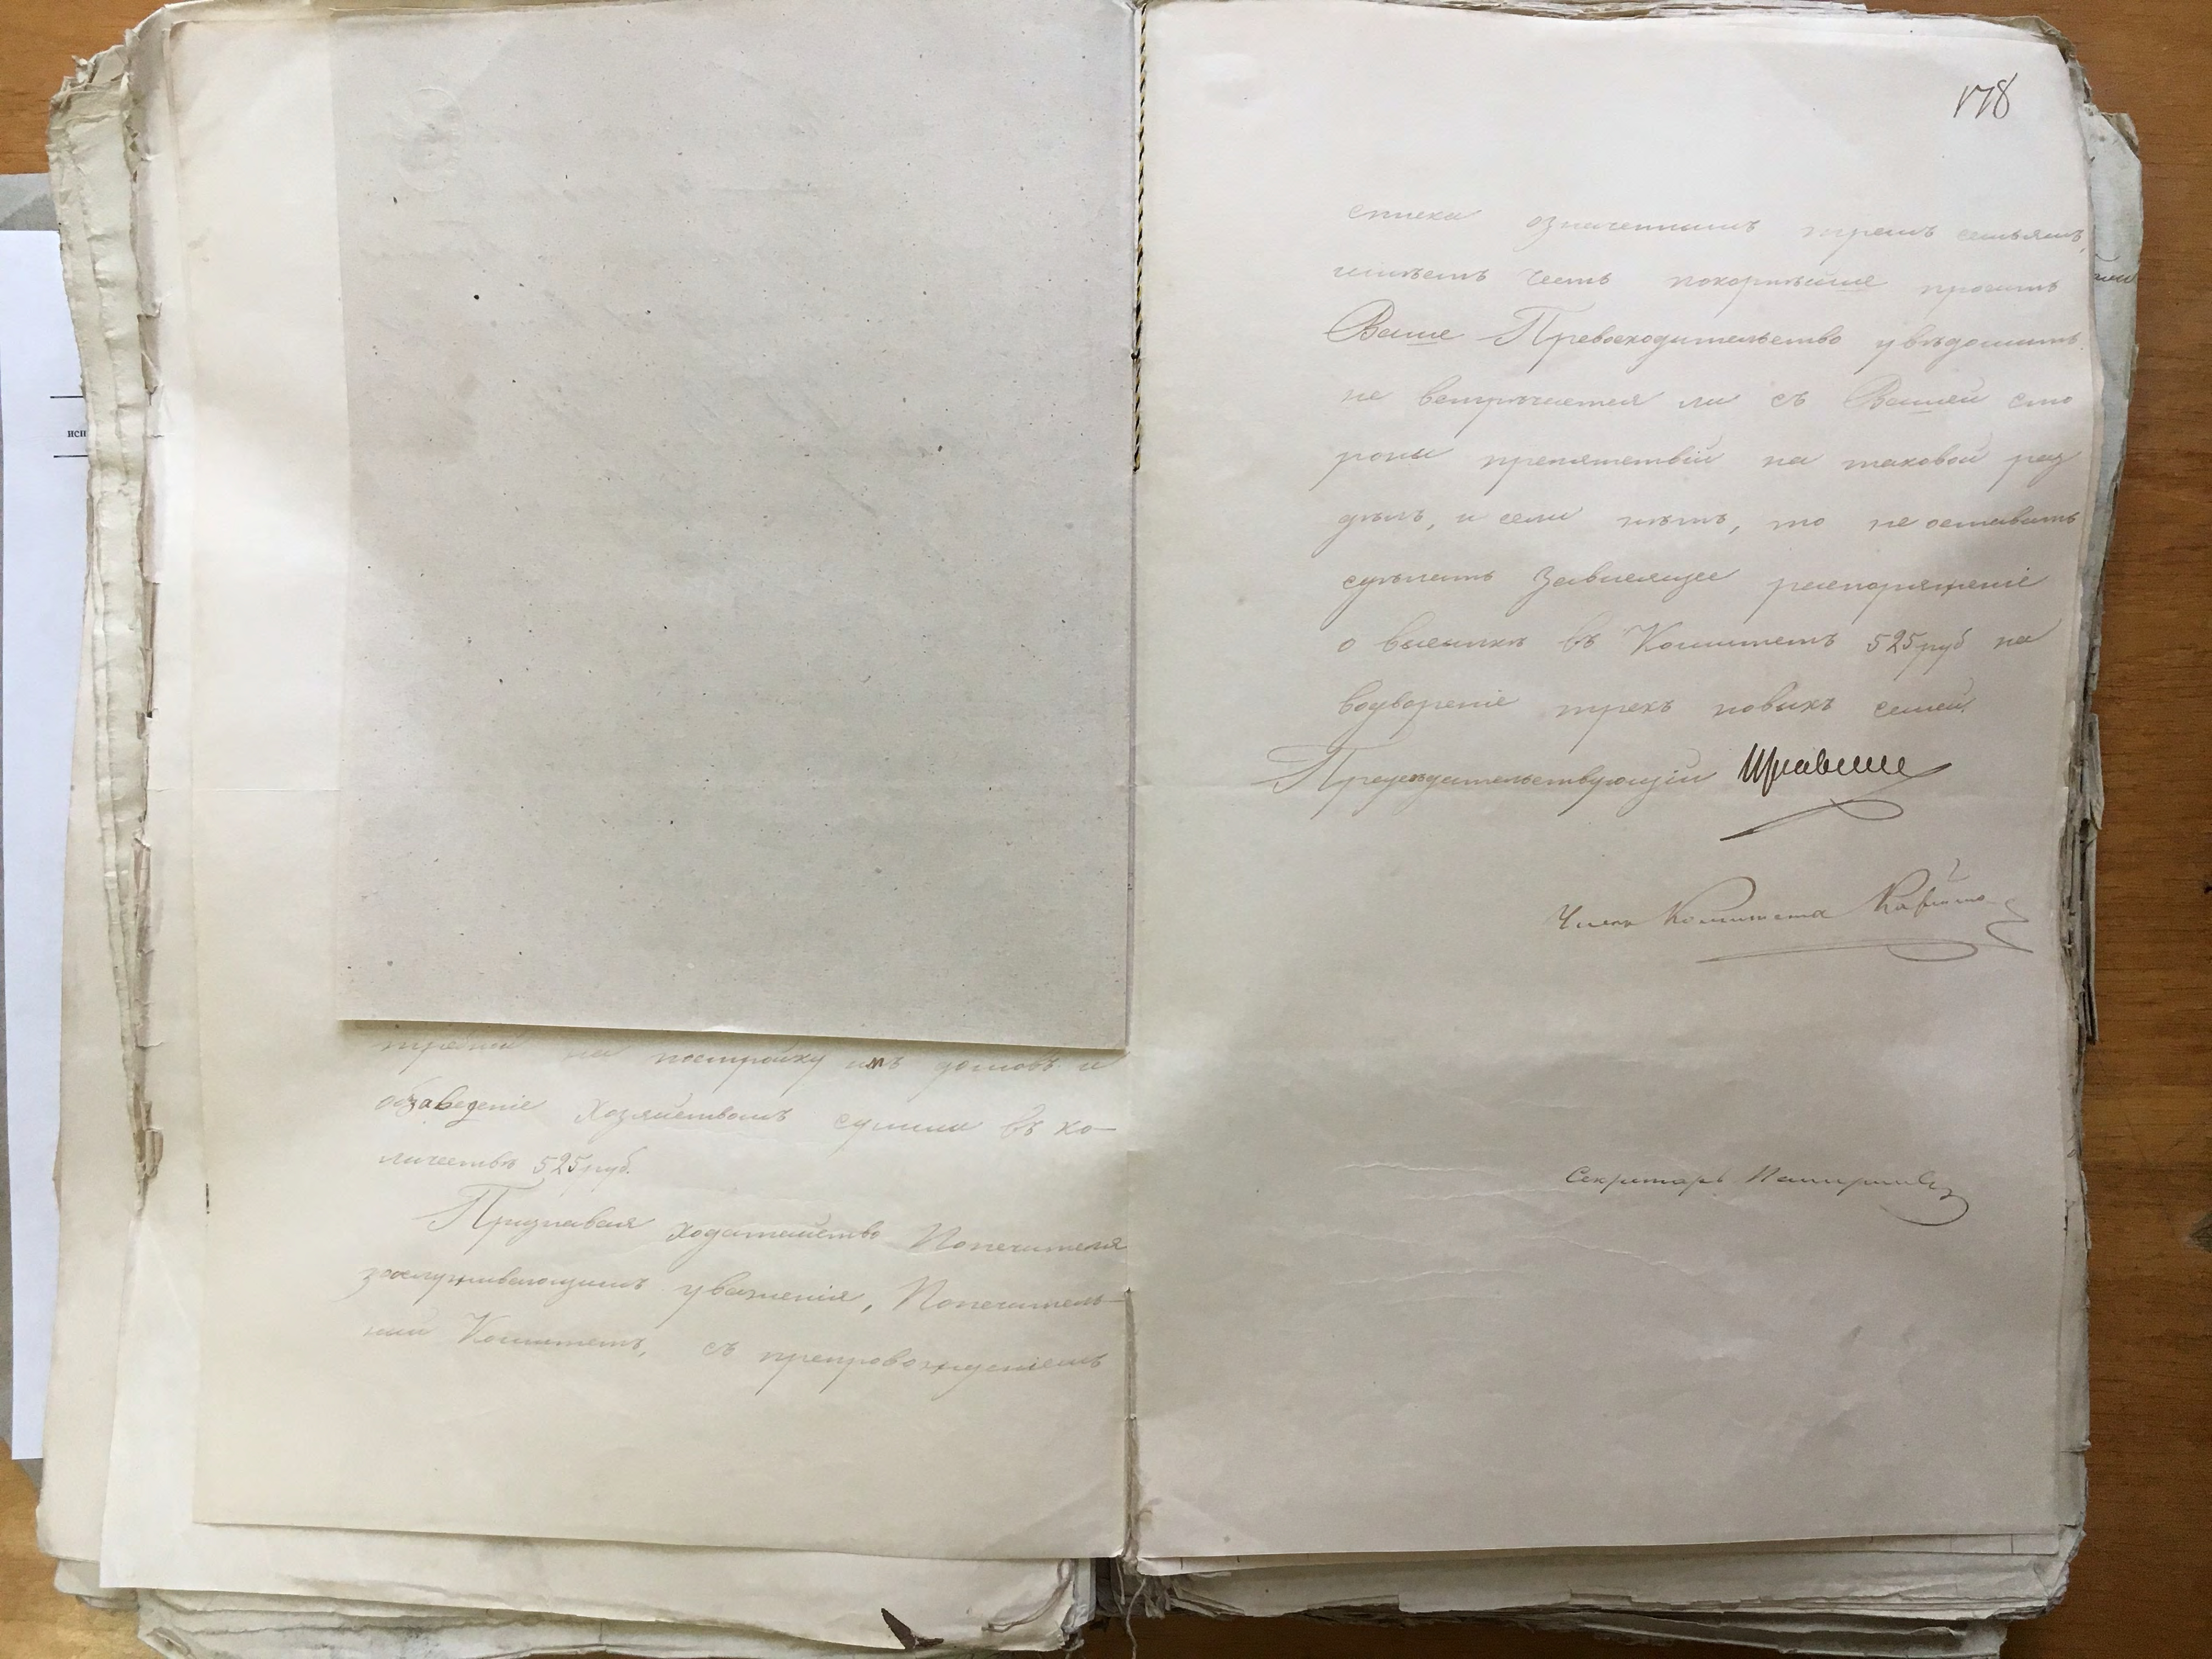 исп
на постройку имъ домовъ и
обзаведеніе хозяйствомъ суммы въ ко-
личествѣ 525 руб.
Признавая ходатайство Попечителя
заслуживающимъ уваженія, Попечитель-
ный Комитетъ, съ препровожденіемъ
178
списка означеннымъ тремъ семьямъ,
имѣетъ честь покорнѣйше просить
Ваше Превосходительство увѣдомить
не встрѣчается ли съ Вашей сто
роны препятствій на таковой раз
дѣлъ, и если нѣтъ, то не оставить
сдѣлать зависящее распоряженіе
о высылкѣ въ Комитетъ 525 руб на
водвореніе трехъ новыхъ семей.
Предсѣдательствующій
Членъ Комитета
Секретарь